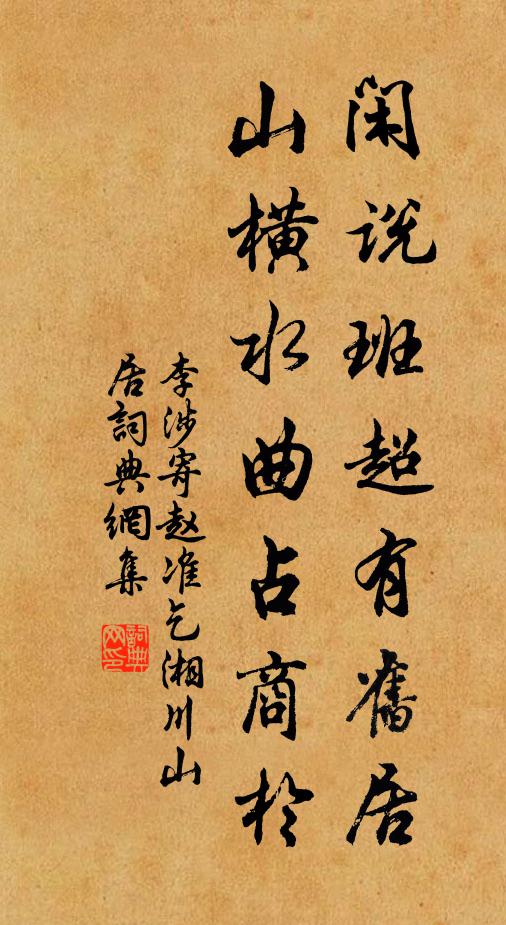 闲说班超有舊居
山橫水曲占商於
李涉寄赵准乞湘川山
居詞典網集
詞典网印